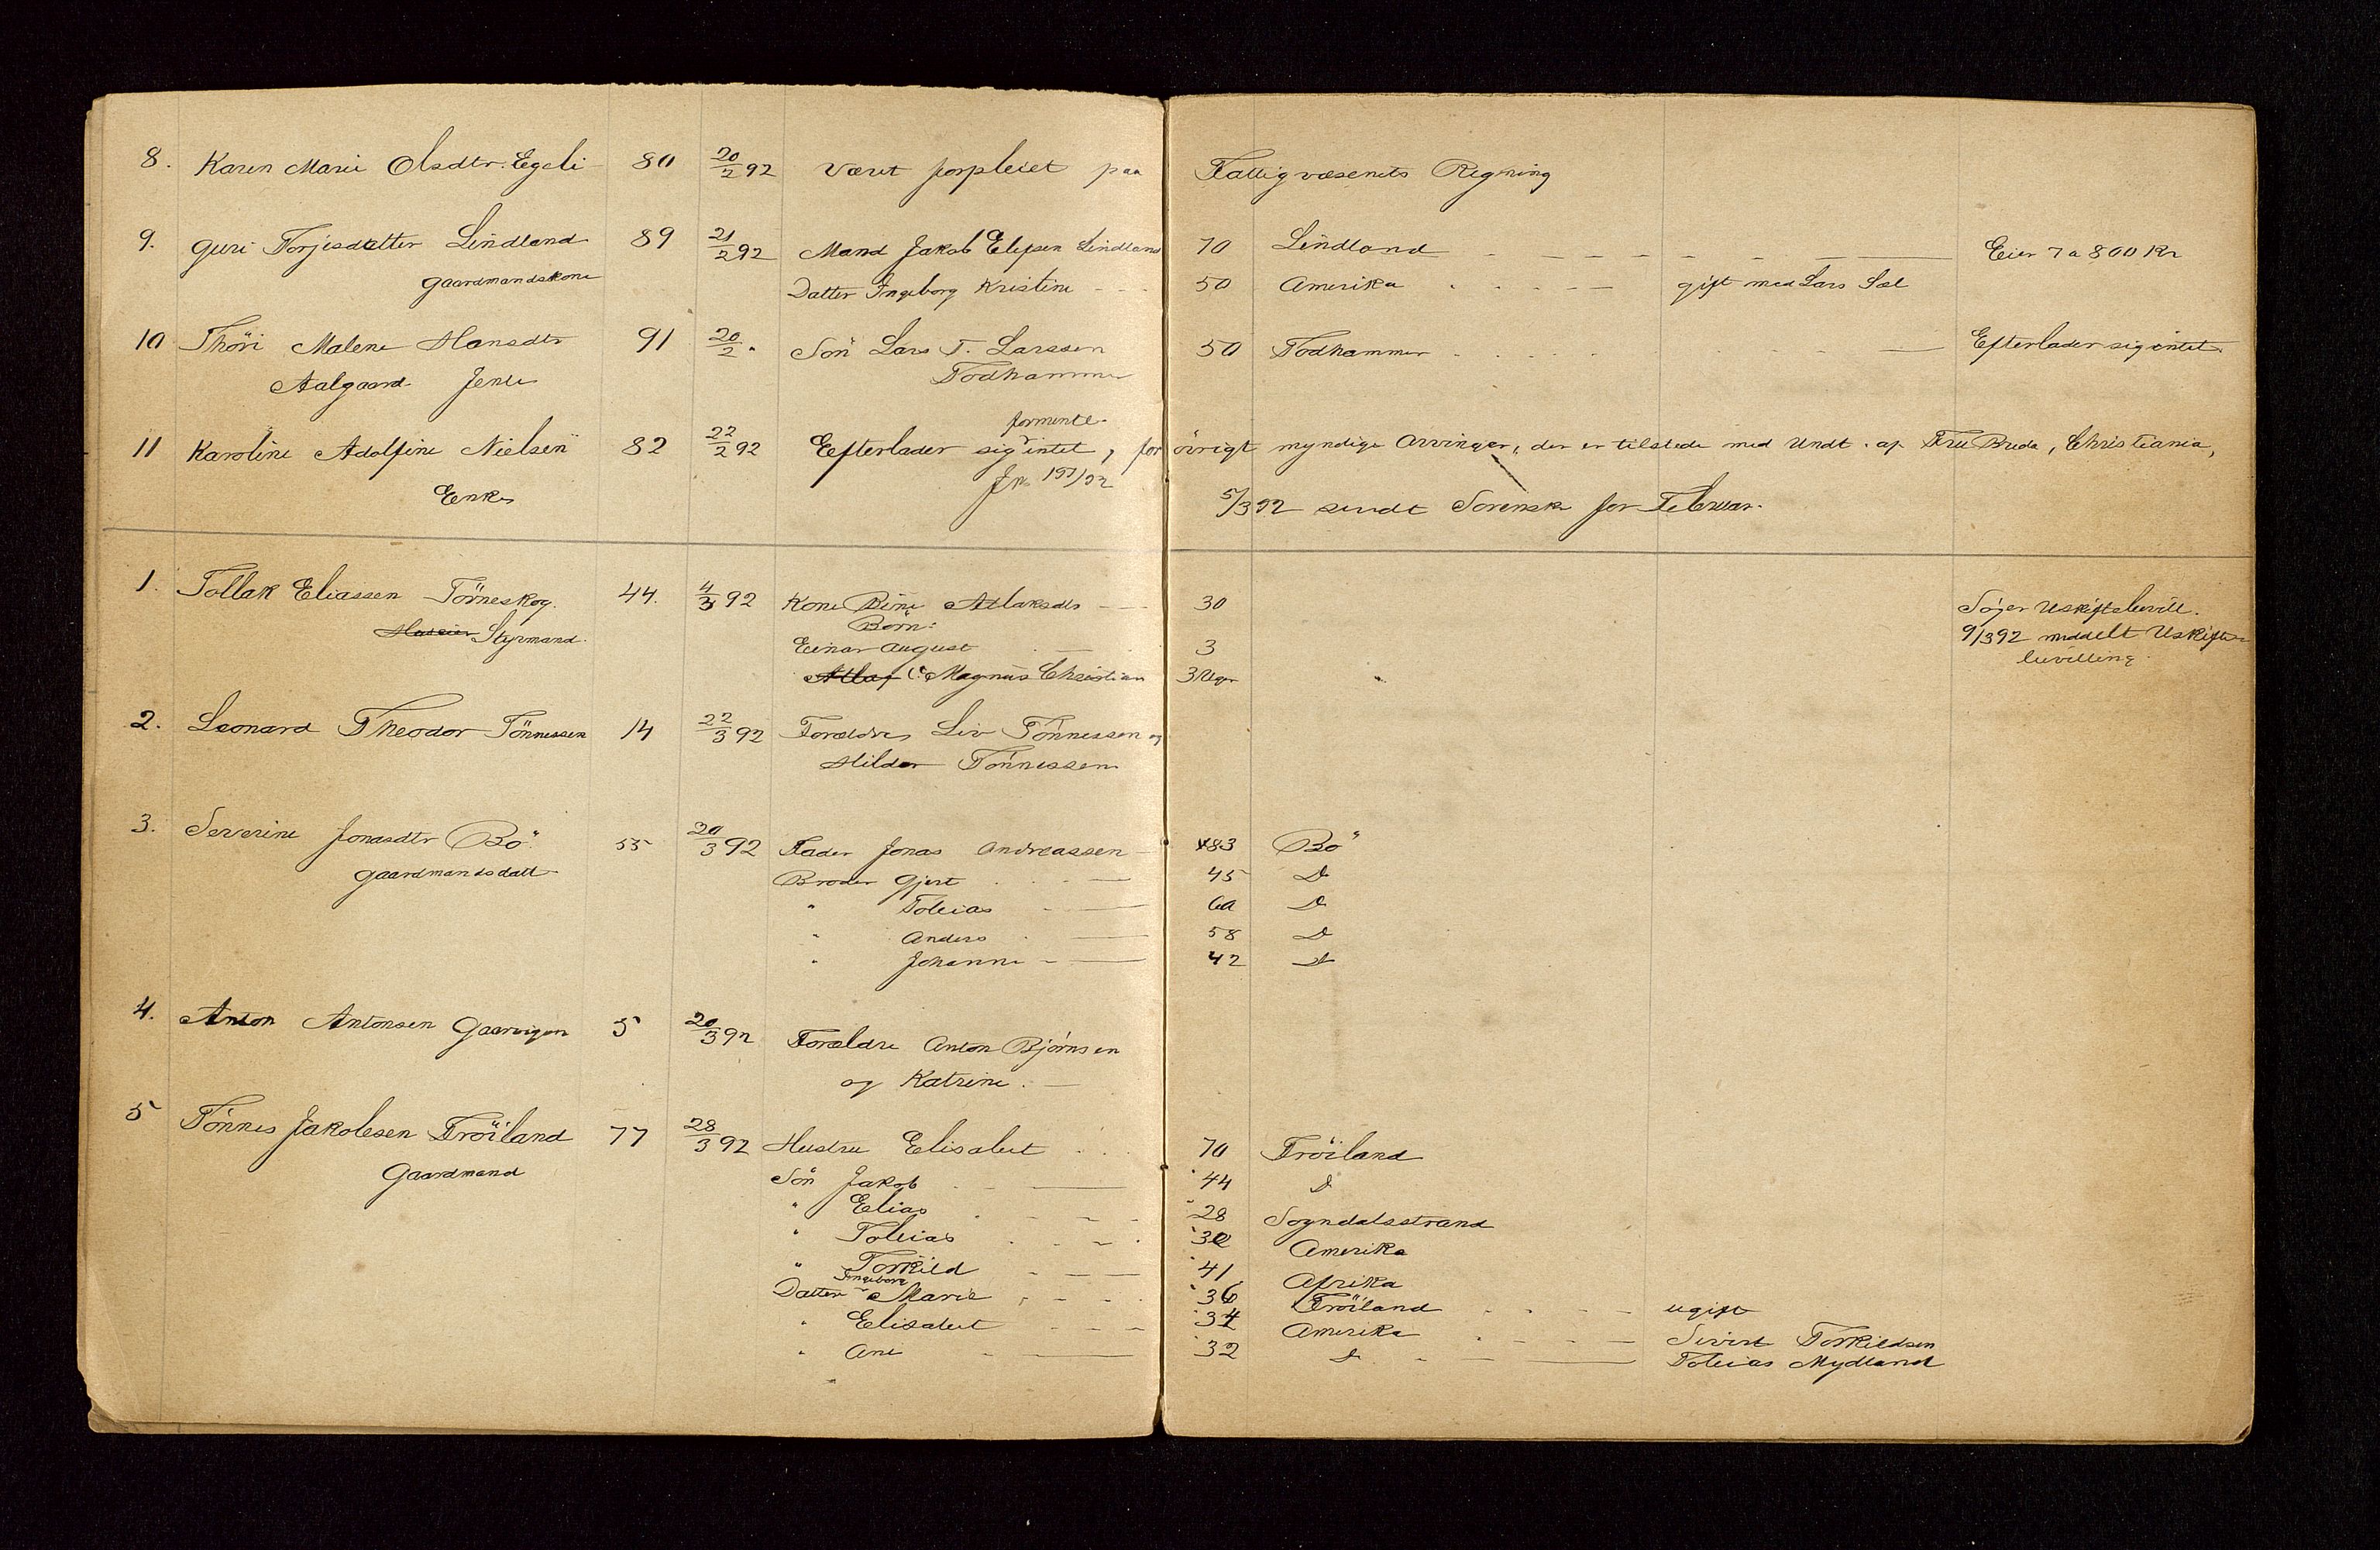 8. Karen Marie Olsdtr. Egeli 80 20/2 92 Været forpleiet paa Fattigvæsenets Regning
9. Guri Torjesdatter Lindland 89 21/2 92 Mand Jakob Eliesen Lindland 70 Lindland Eier 7 a 800 Kr
Gaardmandskone Datter Ingeborg Kristine 50 Amerika gift med Lars Sæl
10 Thöri Malene Hansdtr 91 20/2 " Sön Lars T. Larssen 50 Todhammer Efterlader sig intet.
Aalgaard Jente Todhammer
formentl.
11 Karoline Adolfine Nielsen 82 22/2 92 Efterlader sig intet, for övrigt myndige Arvinger, der er tilstede med Undt. af Fru Breda, Christiania,
Enke Jn 197/92 5/3 92 sendt Sorensk for Februar.
1. Tollak Eliassen Törneskog. 44. 4/3 92 Kone Rine Atlaksdtr 30 Søger Uskiftebevill.
Styrmand. Börn: 9/3 92 meddelt Uskifte
Einar August 3 bevilling.
Atlaf C. Magnus Christian 3 Uger "
2. Leonard Theodor Tönnessen 14 22/3 92 Forældre Liv Tönnessen og
Hilda Tönnessen
3. Severine Jonasdtr Bö. 55 20/3 92 Fader Jonas Andreassen 83 Bö
Gaardmandsdatt Broder Gjert 45 D
" Tobias 60 D
" Anders 58 D
" Johanne 42 D
4. Anton Antonsen Gaarvigen 5 20/3 92 Forældre Anton Bjørnsen
og Katrine.
5 Tönnes Jakobsen Fröiland 77 28/3 92 Hustru Elisabet 70 Fröiland
Gaardmand Sön Jakob 44 D
" Elias 28 Sogndalsstrand
" Tobias 30 Amerika
" Torkild 41 Afrika
Ingeborg
Datter Marie 36 Fröiland ugift
" Elisabet 34 Amerika Sivert Torkildsen
" Ane 32 D Tobias Mydland